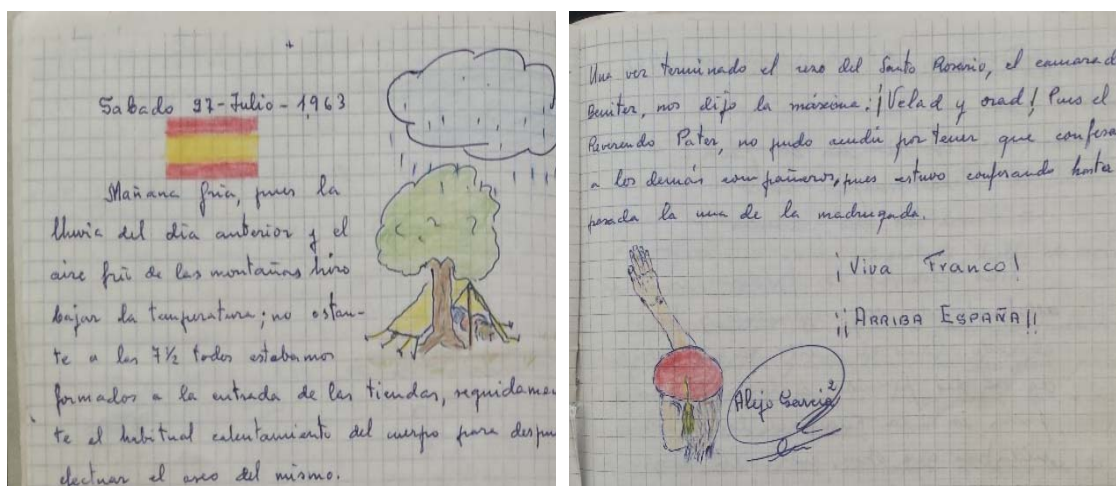 Sabado 27-Julio-1963
Mañana fría, pues la
lluvia del día anterior y el
aire frío de las montañas hizo
bajar la temperatura; no ostan-
te a las 7½ todos estabamos
formados a la entrada de las tiendas, seguidamen
te el habitual calentamiento del cuerpo para despu
efectuar el aseo del mismo.
Una vez terminado el rezo del Santo Rosario, el camarad
Benitez, nos dijo la máxima: ¡Velad y orad! Pues el
Reverendo Pater, no pudo acudir por tener que confesa
a los demás compañeros, pues estuvo confesando hasta
pasada la una de la madrugada.
¡Viva Franco!
¡¡ARRIBA ESPAÑA!!
Alejo Garcia²